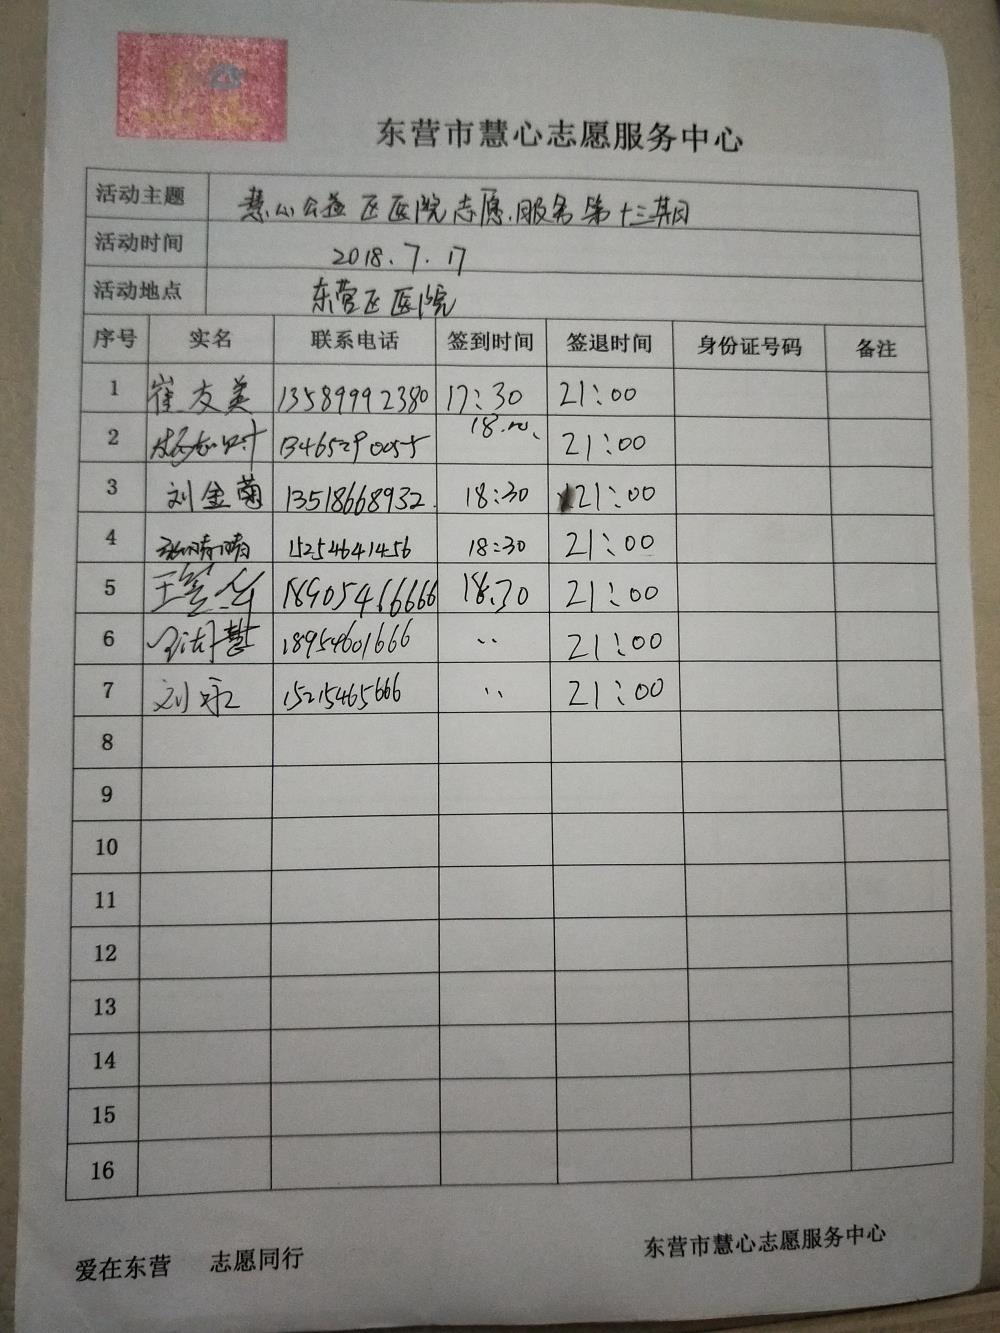 东营市慧心志愿服务中心
活动主题 慧心公益区医院志愿服务第十三期
活动时间 2018.7.17
活动地点 东营区医院
序号 实名 联系电话 签到时间 签退时间 身份证号码 备注
1 崔友美 13589992380 17:30 21:00
2 13465290055 18:00 21:00
3 刘金菊 13518668932 18:30 21:00
4 15254641456 18:30 21:00
5 18905466666 18:30 21:00
6 18954601666 〃 21:00
7 刘永 15215465666 〃 21:00
8
9
10
11
12
13
14
15
16
爱在东营 志愿同行 东营市慧心志愿服务中心